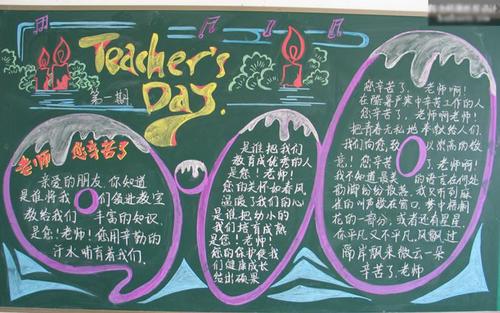 Teacher's
Day.
第一期
老师 您辛苦了
亲爱的朋友,你知道
是谁将我们领进教室
教给我们 丰富的知识
是您!老师!您用辛勤的
汗水哺育着我们.
是谁把我们
教育成优秀的人
是您!老师!
您的关怀如春风
温暖了我们的心
是谁把幼小的
我们培育成熟
是您!老师!
您的保护使我
们健康成长
结出硕果
您辛苦了,老师啊!
在酷暑严寒中辛苦工作的人
您辛苦了,老师啊老师!
把青春无私地奉献给人们.
我们向您致以崇高的敬
意!您辛苦了,老师啊!
我不知道最美的语言在何处
勒脚纷纷
雀的叫声敲在窗口.梦中梧桐
花的一部分,或者还有星星
你平凡又不平凡.风飘过
隔岸飘来微云一朵
辛苦了.老师